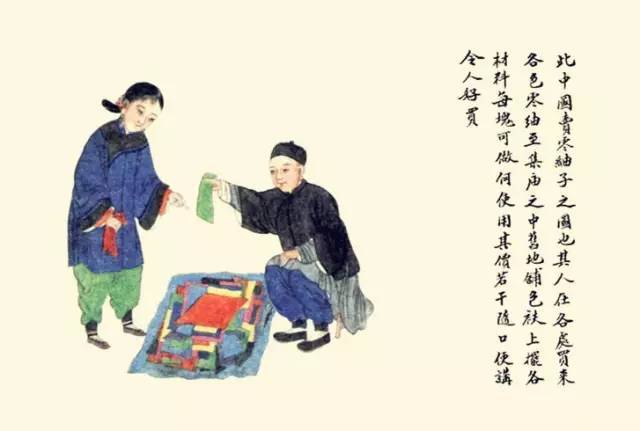 此中國賣零紬子之圖也其人在各處買來
各色零紬至集庙之中舊地鋪色袱上擺各
材料每塊可做何使用其價若干隨口便講
令人好買